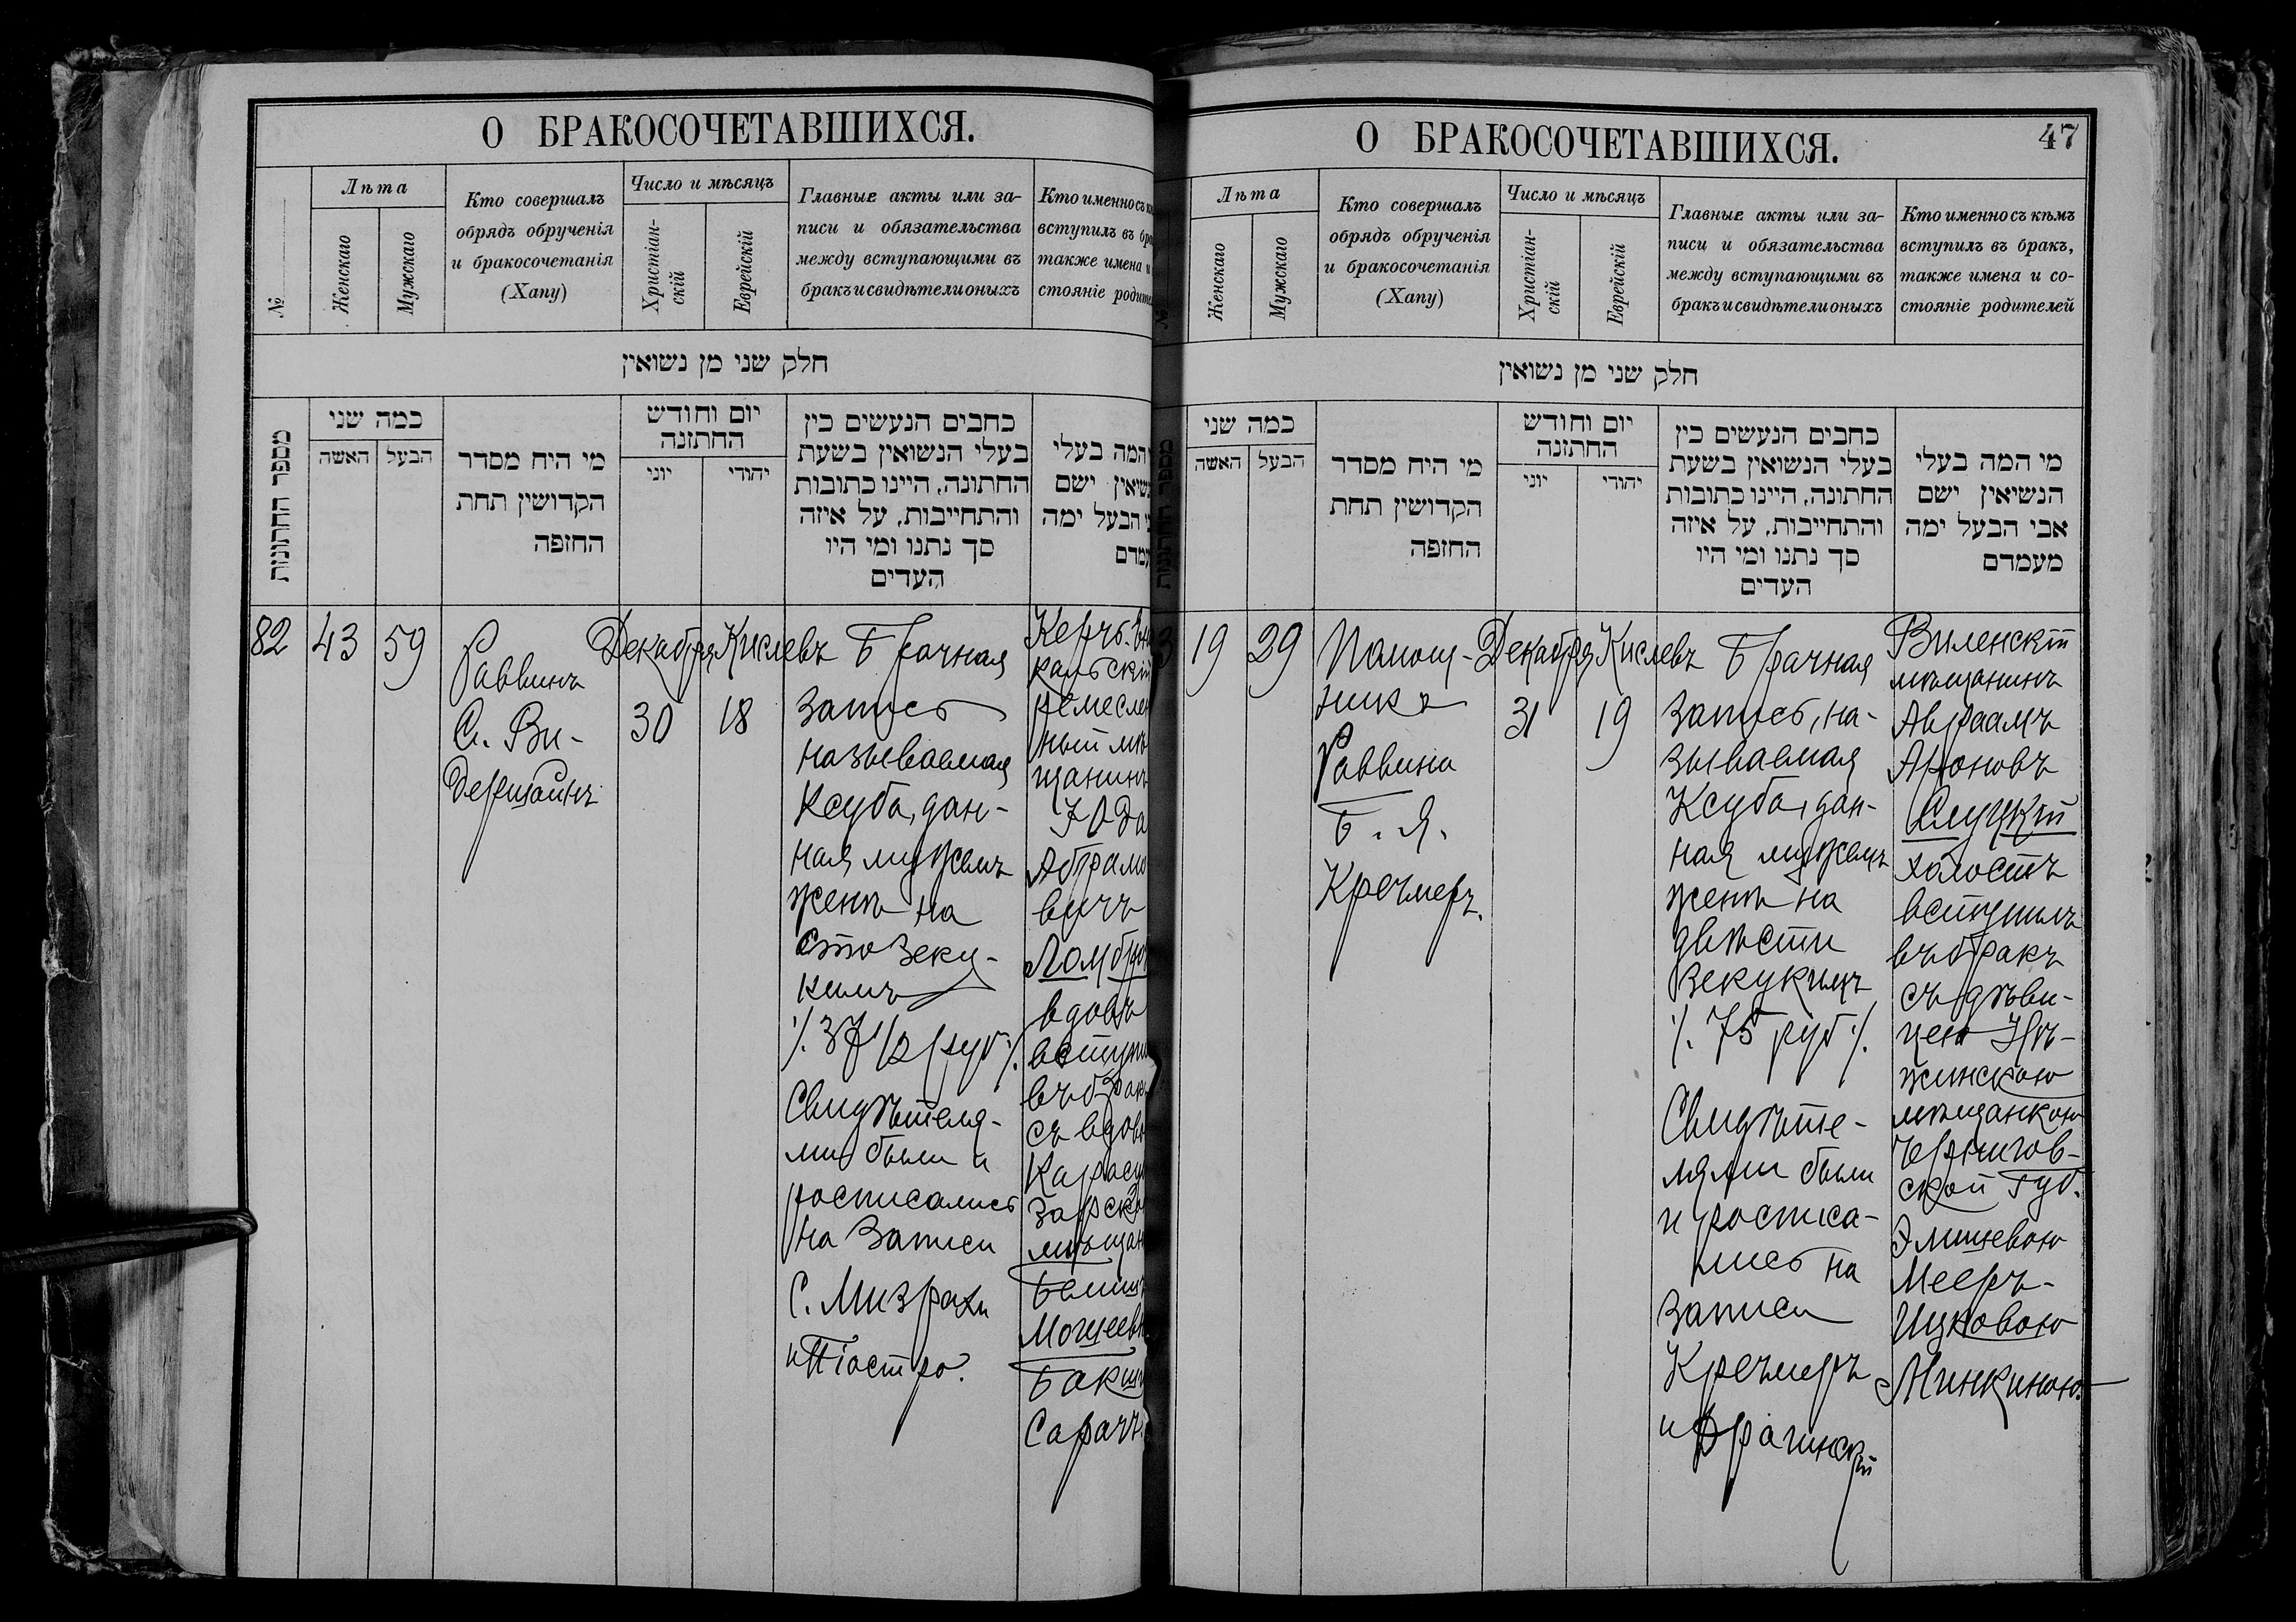 О БРАКОСОЧЕТАВШИХСЯ.
№
Лѣта
Женскаго
Мужскаго
Кто совершалъ
обрядъ обрученія
и бракосочетанія
(Хапу)
Число и мѣсяцъ
Христіан-
скій
Еврейскій
Главные акты или за-
писи и обязательства
между вступающими въ
бракъ и свидѣтели оныхъ
Кто именно съ
вступилъ въ
также имена и
стояніе
חלק שני מן נשואין
מספר החתונות
כמה שני
האשה
הבעל
מי היח מסדר
הקדושין תחת
החופה
יום וחודש
החתונה
יוני
יהודי
כחבים הנעשים כין
בעלי הנשואין בשעת
החתונה, היינו כתובות
והתחייבות, על איזה
סך נתנו ומי היו
העדים
המה בעלי
ישם
הבעל ימה
82
43
59
Раввинъ
С. Ви-
дерпойнъ
Декабря
30
Кислевъ
18
Брачная
запись
называемая
Ксуба, дан-
ная мужемъ
женѣ на
сто зеку-
кимъ
/. 37 1/2 руб /.
Свидѣтеля-
ми были и
росписались
на записи
С. Мизрахи
и Піастро.
Керчь-
кальскій
ремеслен
ный мѣ
щанинъ
Юда
Абрамо
вичъ
вдовъ
вступи
въ брак
съ вдово
Карасу
зарско
мѣщан
Мошеевн
Сарачъ
О БРАКОСОЧЕТАВШИХСЯ.
47
Лѣта
Женскаго
Мужскаго
Кто совершалъ
обрядъ обрученія
и бракосочетанія
(Хапу)
Число и мѣсяцъ
Христіан-
скій
Еврейскій
Главные акты или за-
писи и обязательства
между вступающими въ
бракъ и свидѣтели оныхъ
Кто именно съ кѣмъ
вступилъ въ бракъ,
также имена и со-
стояніе родителей
חלק שני מן נשואין
כמה שני
האשה
הבעל
מי היח מסדר
הקדושין תחת
החופה
יום וחודש
החתונה
יוני
יהודי
כחבים הנעשים כין
בעלי הנשואין בשעת
החתונה, היינו כתובות
והתחייבות, על איזה
סך נתנו ומי היו
העדים
מי המה בעלי
הנשיאין ישם
אבי הבעל ימה
מעמדם
3
19
29
Помощ-
ника
Раввина
Б. Я.
Кречмеръ.
Декабря
31
Кислевъ
19
Брачная
запись, на-
зываемая
Ксуба, дан-
ная мужемъ
женѣ на
двѣсти
зекукимъ
/. 75 руб /.
Свидѣте-
лями были
и росписа-
лись на
записи
Кречмеръ
и Фрагинскій
Виленскій
мѣщанинъ
Авраамъ
Ароновъ
Слуцкій
холостъ
вступилъ
въ бракъ
съ дѣви-
цею Нѣ-
жинскою
мѣщанкою
Чернигов-
ской губ.
Элишевою
Мееръ-
Ицковою
Минкиною.